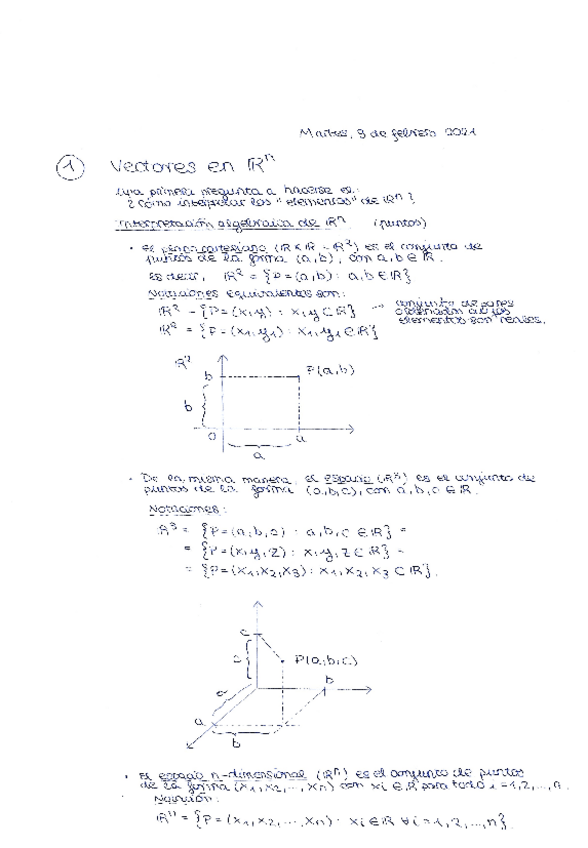 Martes, 9 de febrero 2021
1 Vectores en ℝⁿ
Una primera pregunta a hacerse es:
¿Cómo interpretar los "elementos" de ℝⁿ?
Interpretación algebraica de ℝⁿ (puntos)
• El plano cartesiano (ℝ×ℝ = ℝ²) es el conjunto de
puntos de la forma (a,b), con a,b ∈ ℝ.
Es decir, ℝ² = {P=(a,b) : a,b ∈ ℝ}
Notaciones equivalentes son:
ℝ² = {P=(x,y) : x,y ∈ ℝ} → conjunto de pares
ordenados cuyos
ℝ² = {P=(x₁,y₁) : x₁,y₁ ∈ ℝ} elementos son reales.
ℝ²
b P(a,b)
b
0 a
a
• De la misma manera, el espacio (ℝ³) es el conjunto de
puntos de la forma (a,b,c), con a,b,c ∈ ℝ.
Notaciones:
ℝ³ = {P=(a,b,c) : a,b,c ∈ ℝ} =
= {P=(x,y,z) : x,y,z ∈ ℝ} =
= {P=(x₁,x₂,x₃) : x₁,x₂,x₃ ∈ ℝ}.
c
c P(a,b,c)
a b
a
b
• El espacio n-dimensional (ℝⁿ) es el conjunto de puntos
de la forma (x₁,x₂,...,xn) con xi ∈ ℝ para todo i=1,2,...,n.
Notación:
ℝⁿ = {P=(x₁,x₂,...,xn) : xi ∈ ℝ ∀i=1,2,...,n}